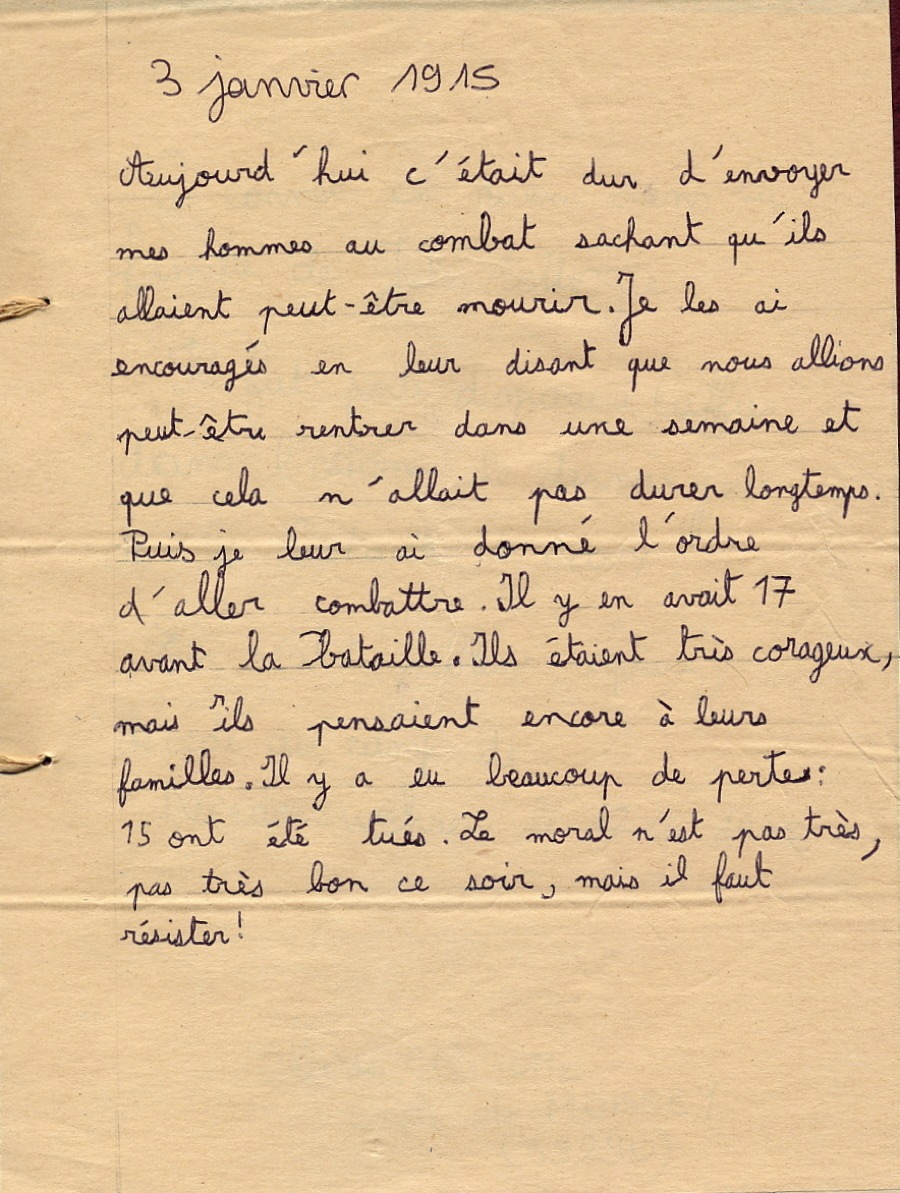 3 janvier 1915
Aujourd'hui c'était dur d'envoyer
mes hommes au combat sachant qu'ils
allaient peut-être mourir. Je les ai
encouragés en leur disant que nous allions
peut-être rentrer dans une semaine et
que cela n'allait pas durer longtemps.
Puis je leur ai donné l'ordre
d'aller combattre. Il y en avait 17
avant la bataille. Ils étaient très corageux,
mais ils pensaient encore à leurs
familles. Il y a eu beaucoup de pertes:
15 ont été tués. Le moral n'est pas très,
pas très bon ce soir, mais il faut
résister!